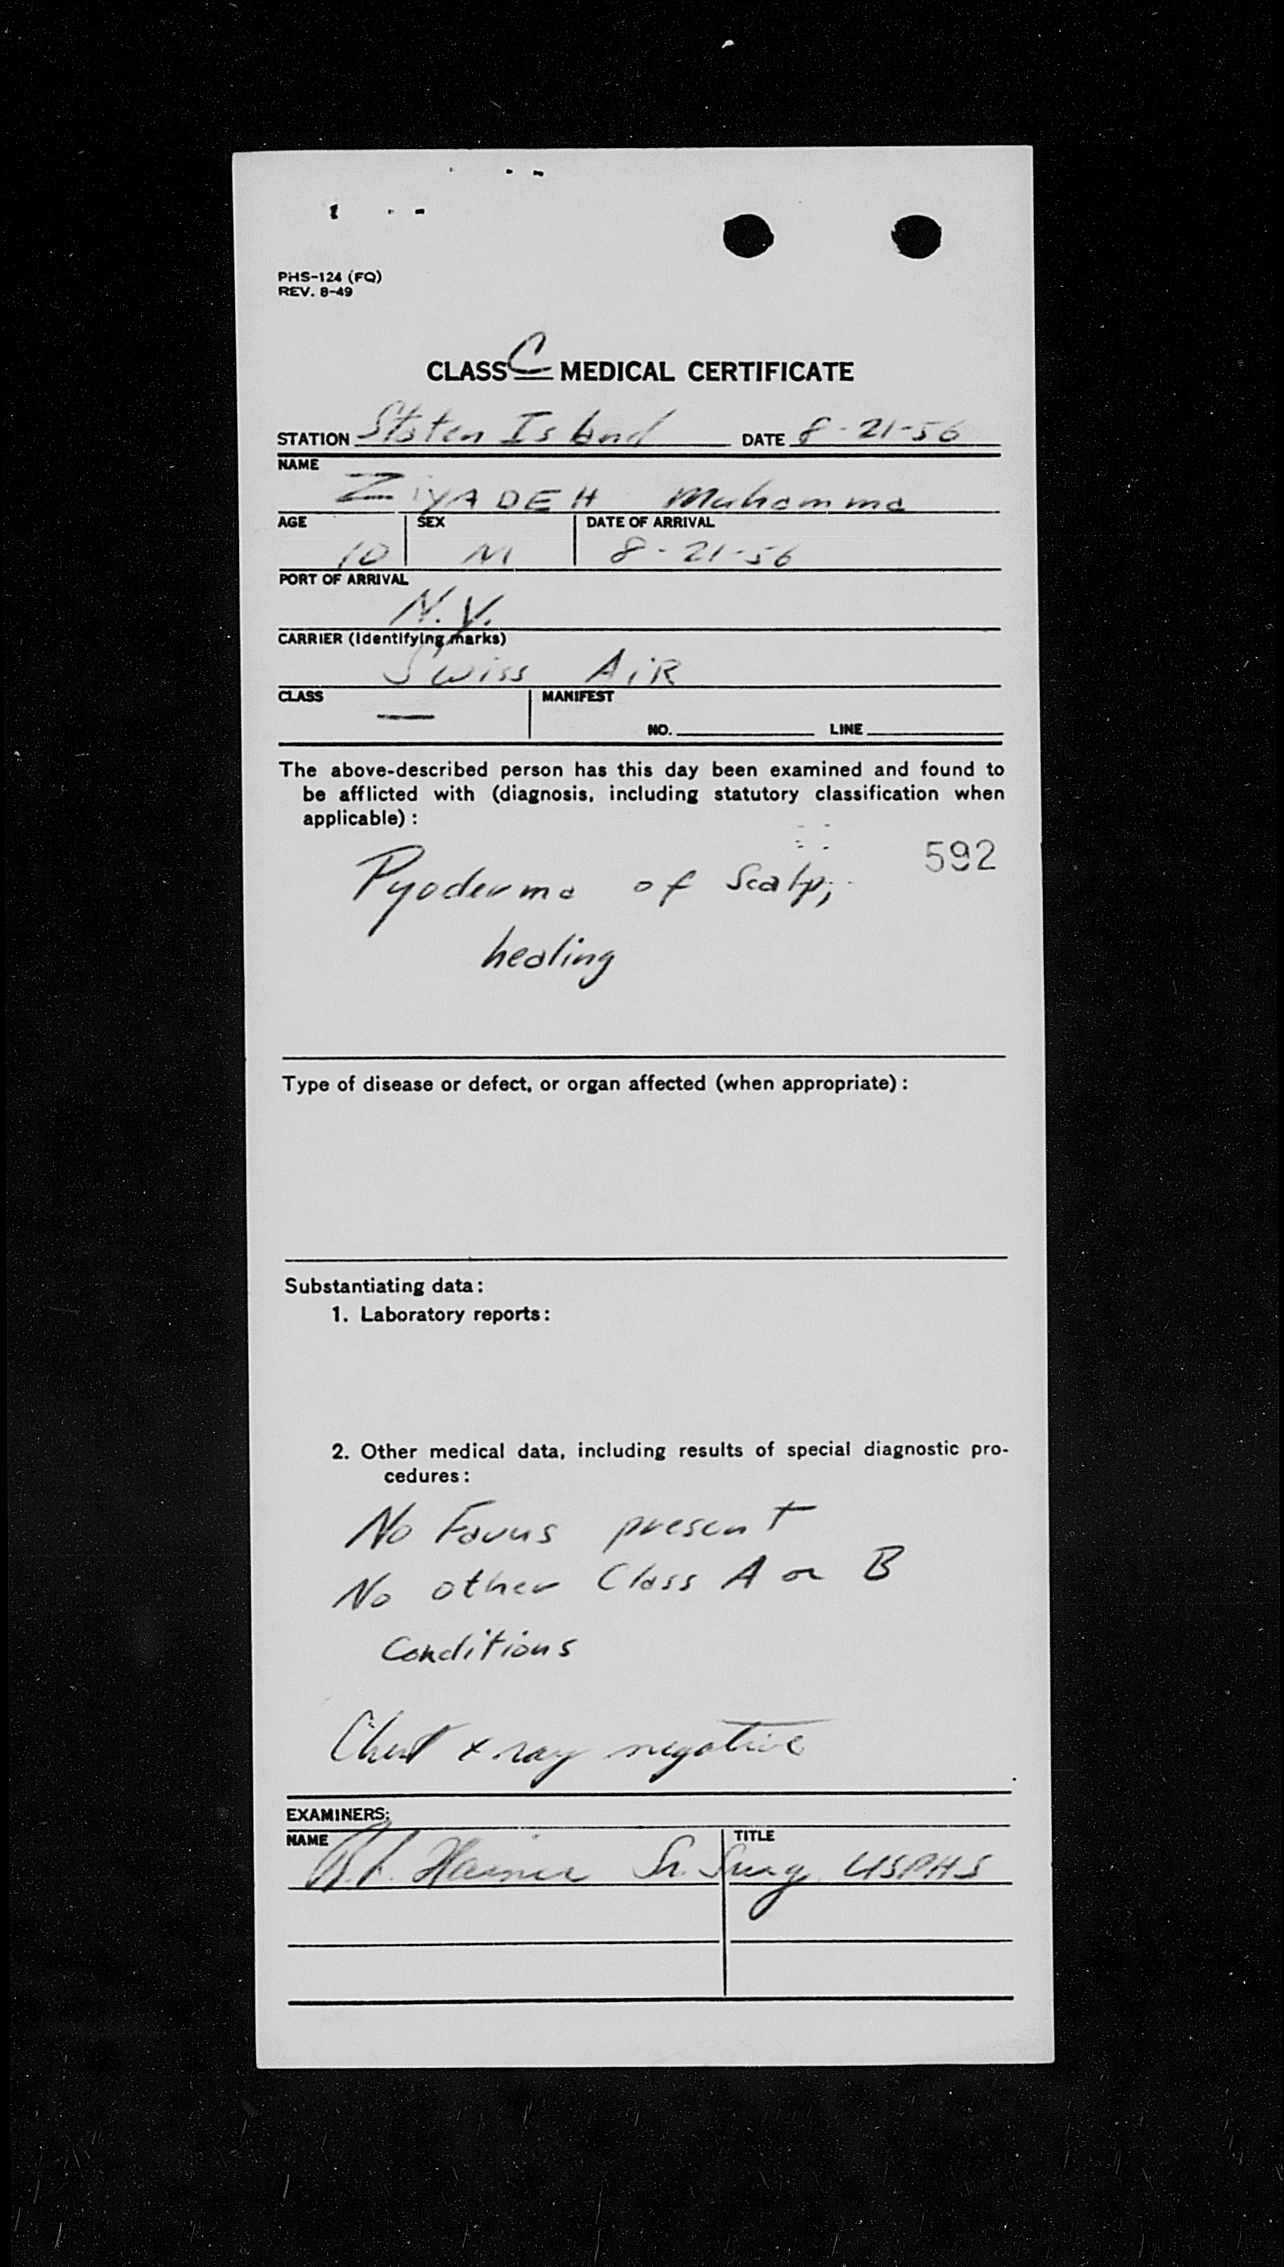 PHS-124 (FQ)
REV. 8-49
CLASS C MEDICAL CERTIFICATE
STATION Staten Island DATE 8-21-56
NAME
ZIYADEH Muhamma
AGE SEX DATE OF ARRIVAL
10 M 8-21-56
PORT OF ARRIVAL
N.Y.
CARRIER (Identifying marks)
Swiss AiR
CLASS MANIFEST
— NO. LINE
The above-described person has this day been examined and found to
be afflicted with (diagnosis, including statutory classification when
applicable):
592
Pyoderma of Scalp,
healing
Type of disease or defect, or organ affected (when appropriate):
Substantiating data:
1. Laboratory reports:
2. Other medical data, including results of special diagnostic pro-
cedures:
No Favus present
No other Class A or B
Conditions
Chest x ray negative
EXAMINERS:
NAME TITLE
Sr. Surg. USPHS